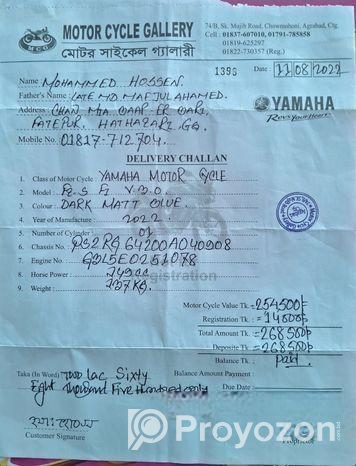 MCG
MOTOR CYCLE GALLERY
মোটর সাইকেল গ্যালারী
74/B, Sk. Mujib Road, Chowmohoni, Agrabad, Ctg.
Cell : 01837-607010, 01791-785858
01819-625297
01822-730357 (Reg.)
1396 Date : 11/08/2022
Name MOHAMMED HOSSEN.
Father's Name: LATE MD MAFJULAHAMED.
Address CHAN MIA BARI,
FATEPUR. HATHAZARI. CG.
Mobile No. 01817-712704.
YAMAHA
Revs Your Heart
DELIVERY CHALLAN
1. Class of Motor Cycle : YAMAHA MOTOR CYCLE
2. Model : V 3.0
3. Colour : DARK MATT BLUE.
4. Year of Manufacture : 2022.
5. Number of Cylinder : 01
6. Chassis No : PS2RG64200A040908
7. Engine No : G3L5E0251078
8. Horse Power : 149cc
9. Weight : 137KG.
Registration
Motor Cycle Value Tk : 254500/-
Registration Tk : 14000/-
Total Amount Tk : 268500/-
Deposite Tk : 268500/-
Balance Tk :
Balance Amount Payment :
Taka (In Word) Two Lac Sixty
Eight thousand Five Hundred only
Due Date:
Customer Signature
Proprietor
Proyozon